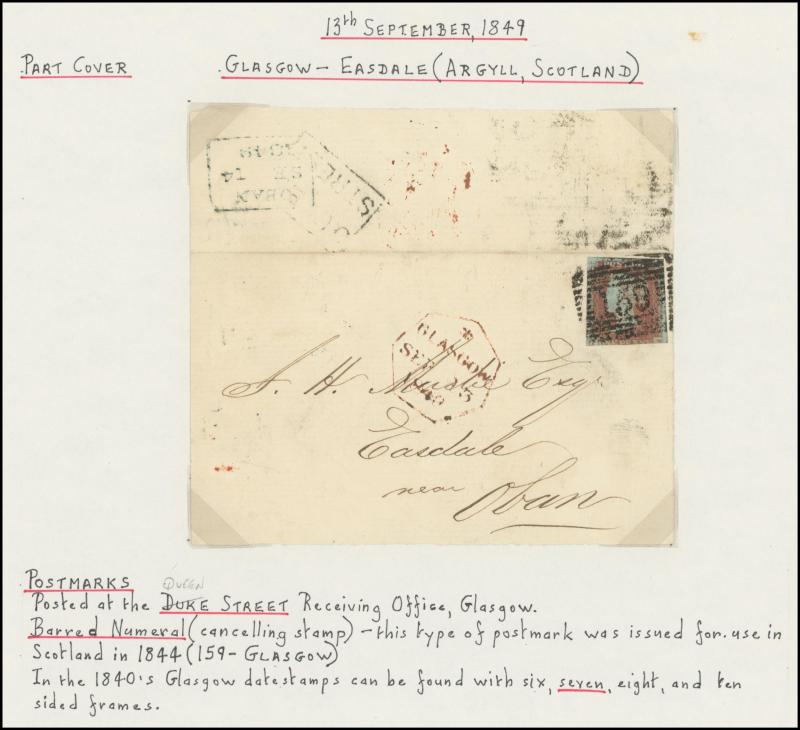 13th SEPTEMBER, 1849
PART COVER
GLASGOW - EASDALE (ARGYLL, SCOTLAND)
OBAN
SE 14
1849
STRE
GLASGOW
SEP 13
1849
J. H. Mudie Esqr
Easdale
near Oban
159
POSTMARKS
QUEEN
Posted at the DUKE STREET Receiving Office, Glasgow.
Barred Numeral (cancelling stamp) - this type of postmark was issued for use in
Scotland in 1844 (159 - GLASGOW)
In the 1840's Glasgow datestamps can be found with six, seven, eight, and ten
sided frames.